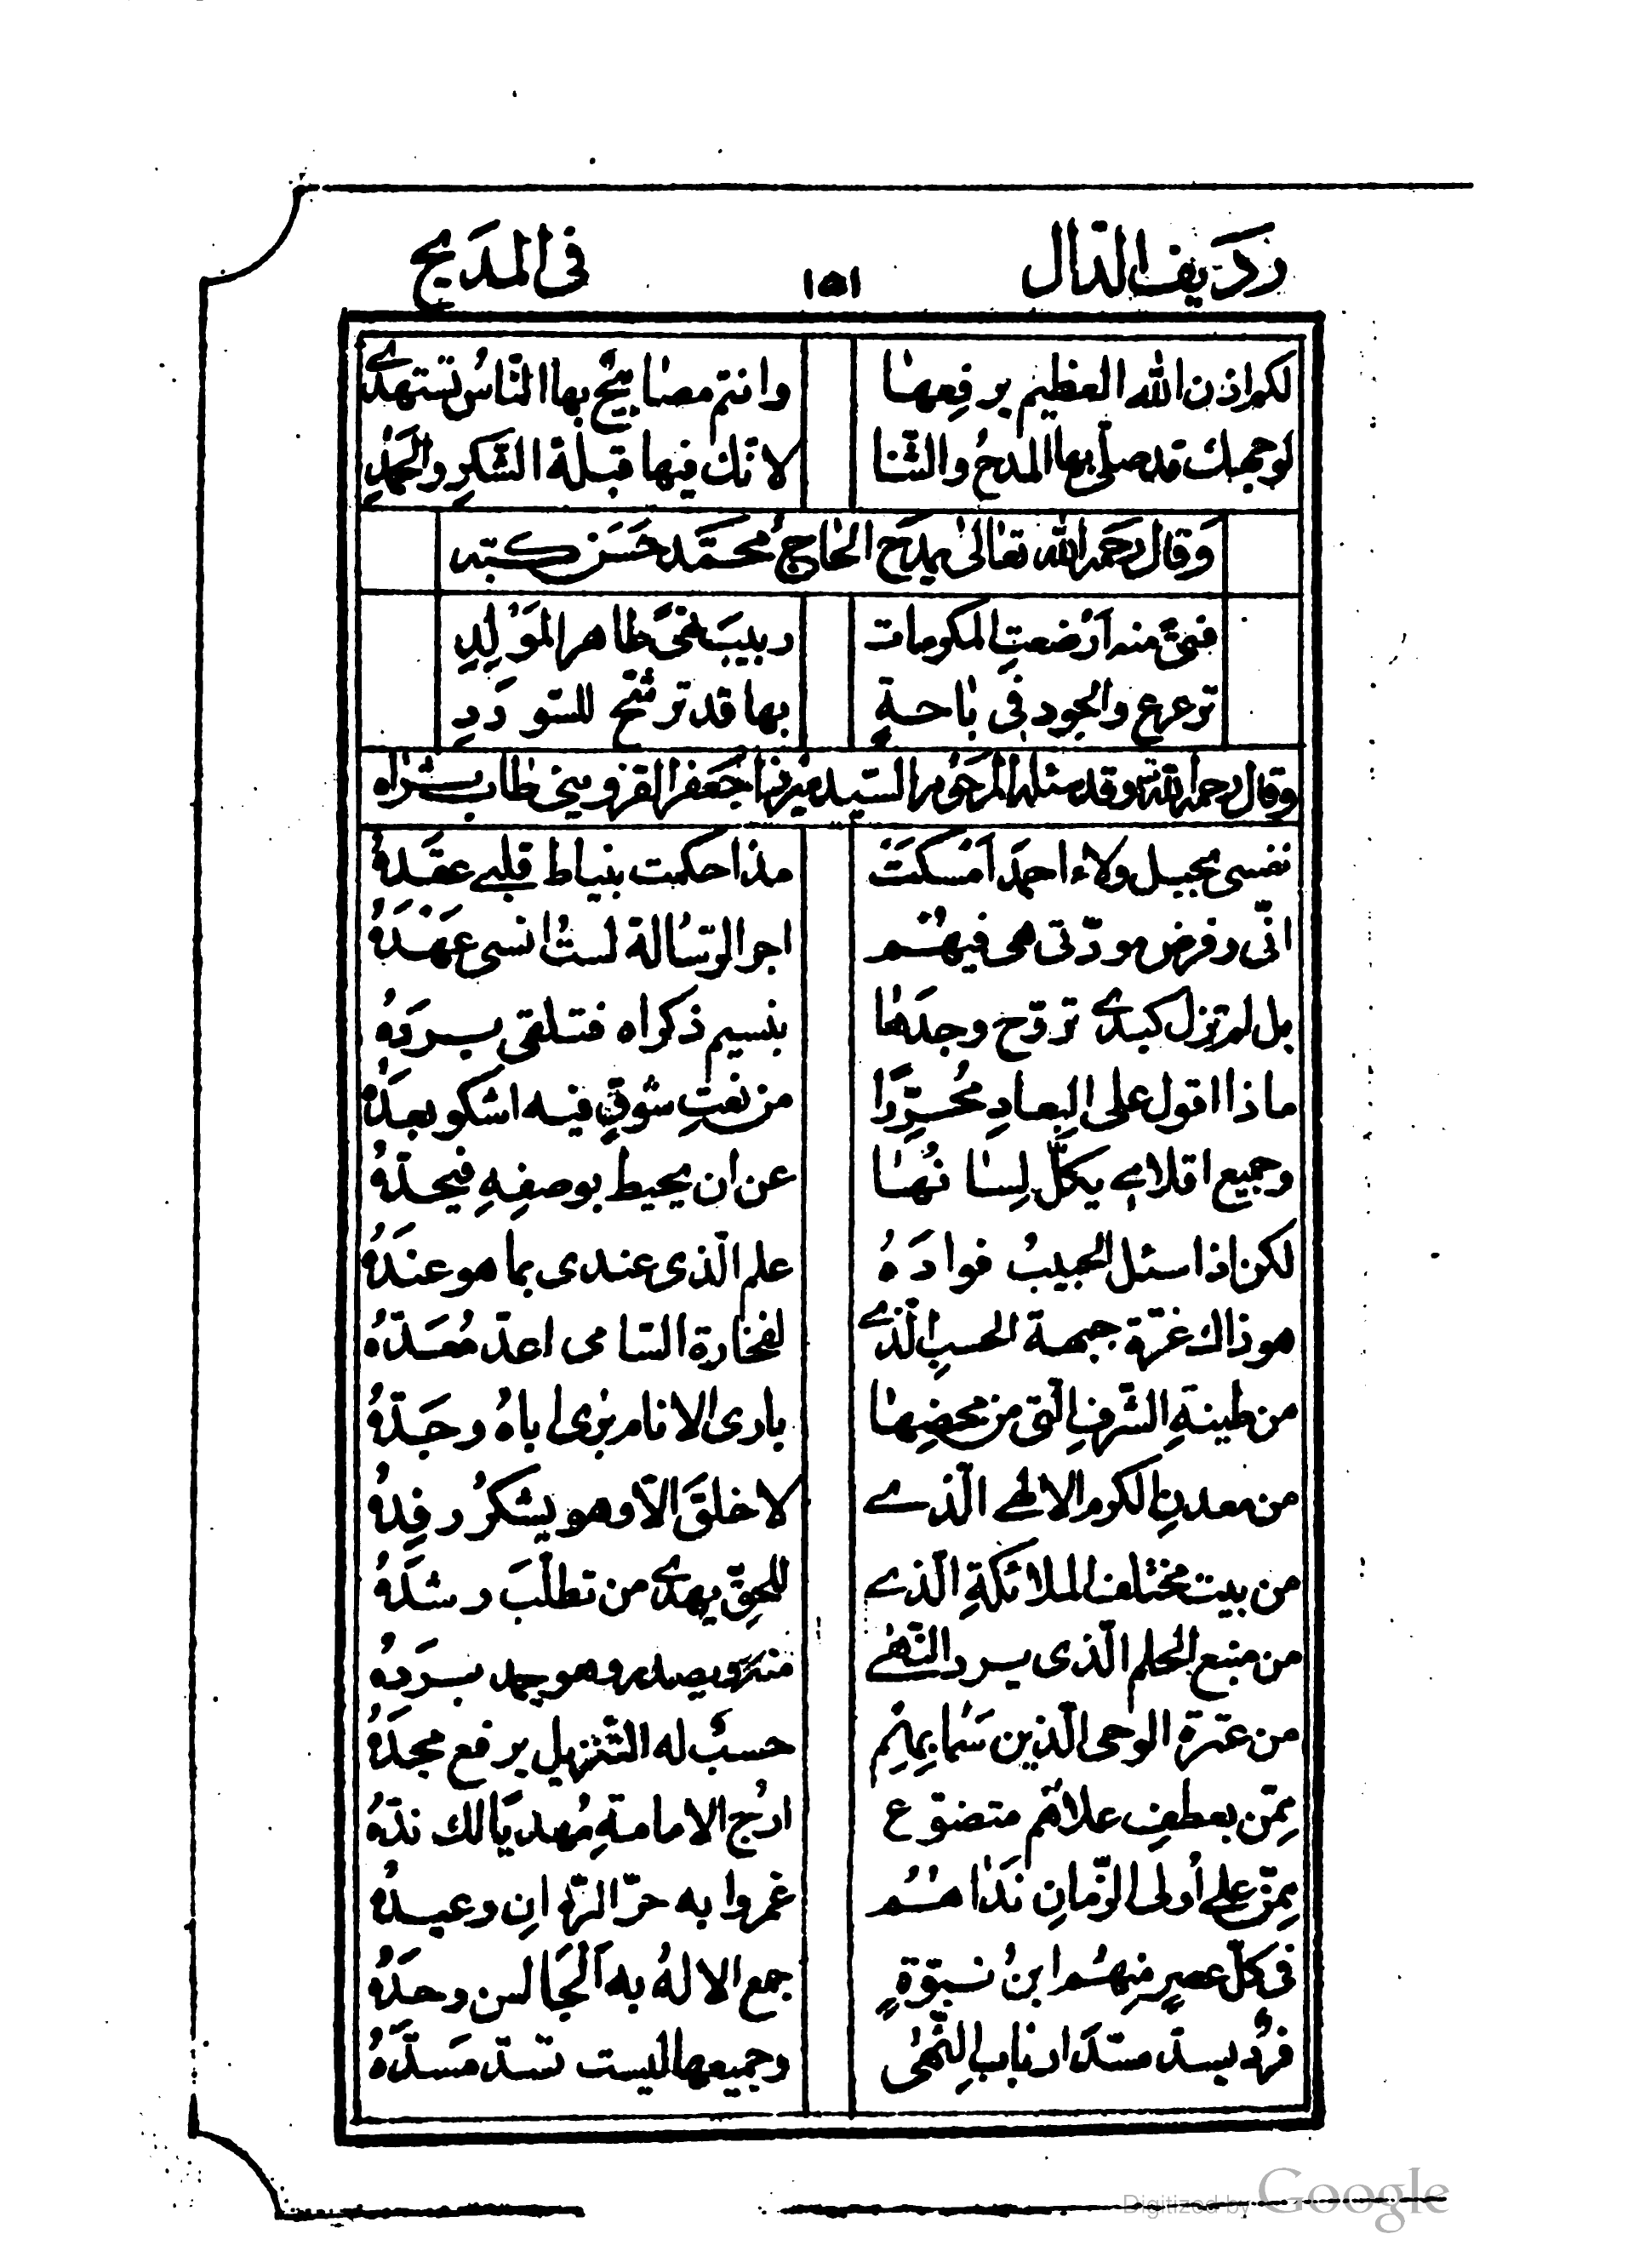 رديف الدال ١٥١ في المديح
لكم اذن الله العظيم برفعها وانتم مصابيح بها الناس تستهدي
لوجهك قد صلى بها المدح والثنا لانك فيها قبلة الشكر والحمد
وقال رحمه الله تعالى يمدح الحاج محمد حسن كبه
فتىً منه ارضعت المكرمات ربيب تقى طاهر المولد
ترعرع والجود في باحةٍ بها قد ترشح للسودد
وقال رحمه الله المرحوم السيد ميرزا جعفر القزويني طاب ثراه
نفسي بحبل ولاء احمد امسكت مذ احكمت بنياط قلبي عقده
اني وفرض مودتي هي فيهم اجر الرسالة لست انسى عهده
بل لم تزل كبدي تروح وجدها بنسيم ذكراه فتلقى برده
ماذا اقول على البعاد محرّرا من نعت شوقي فيه اشكو بعده
وجميع اقلامي يكلّ لسانها عن ان يحيط بوصفه فيحدّه
لكن اذا سئل الحبيب فواده علم الذي عندي بما هو عنده
هو ذاك غرة جبهة الحسب الذي لفخاره السامي اعدّ مُعدّه
من طينة الشرف التي من محضها باري الانام برى اباه وجدّه
من معدن الكرم الالهي الذي لا خلق الّا وهو يشكر رفده
من بيت مختلف الملائكة الذي للحق يهدي من تطلّب رشده
من منبع الحلم الذي يرد النهى منه ويصدر وهو يحمد برده
من عترة الوحي الذين سما بهم حسبٌ له التنزيل يرفع مجده
ممن بعطف علاهم متضوع ارج الامامة مهديًا لك ندّه
ممن على اولى الزمان نداهم غمروا به حرّ الزمان وعبده
في كلّ عصرٍ منهم ابن نبوّةٍ جمع الاله به المحاسن وحده
فردٌ يسدّ مسدّ ارباب النهى وجميعها ليست تسدّ مسدّه
Digitized by Google